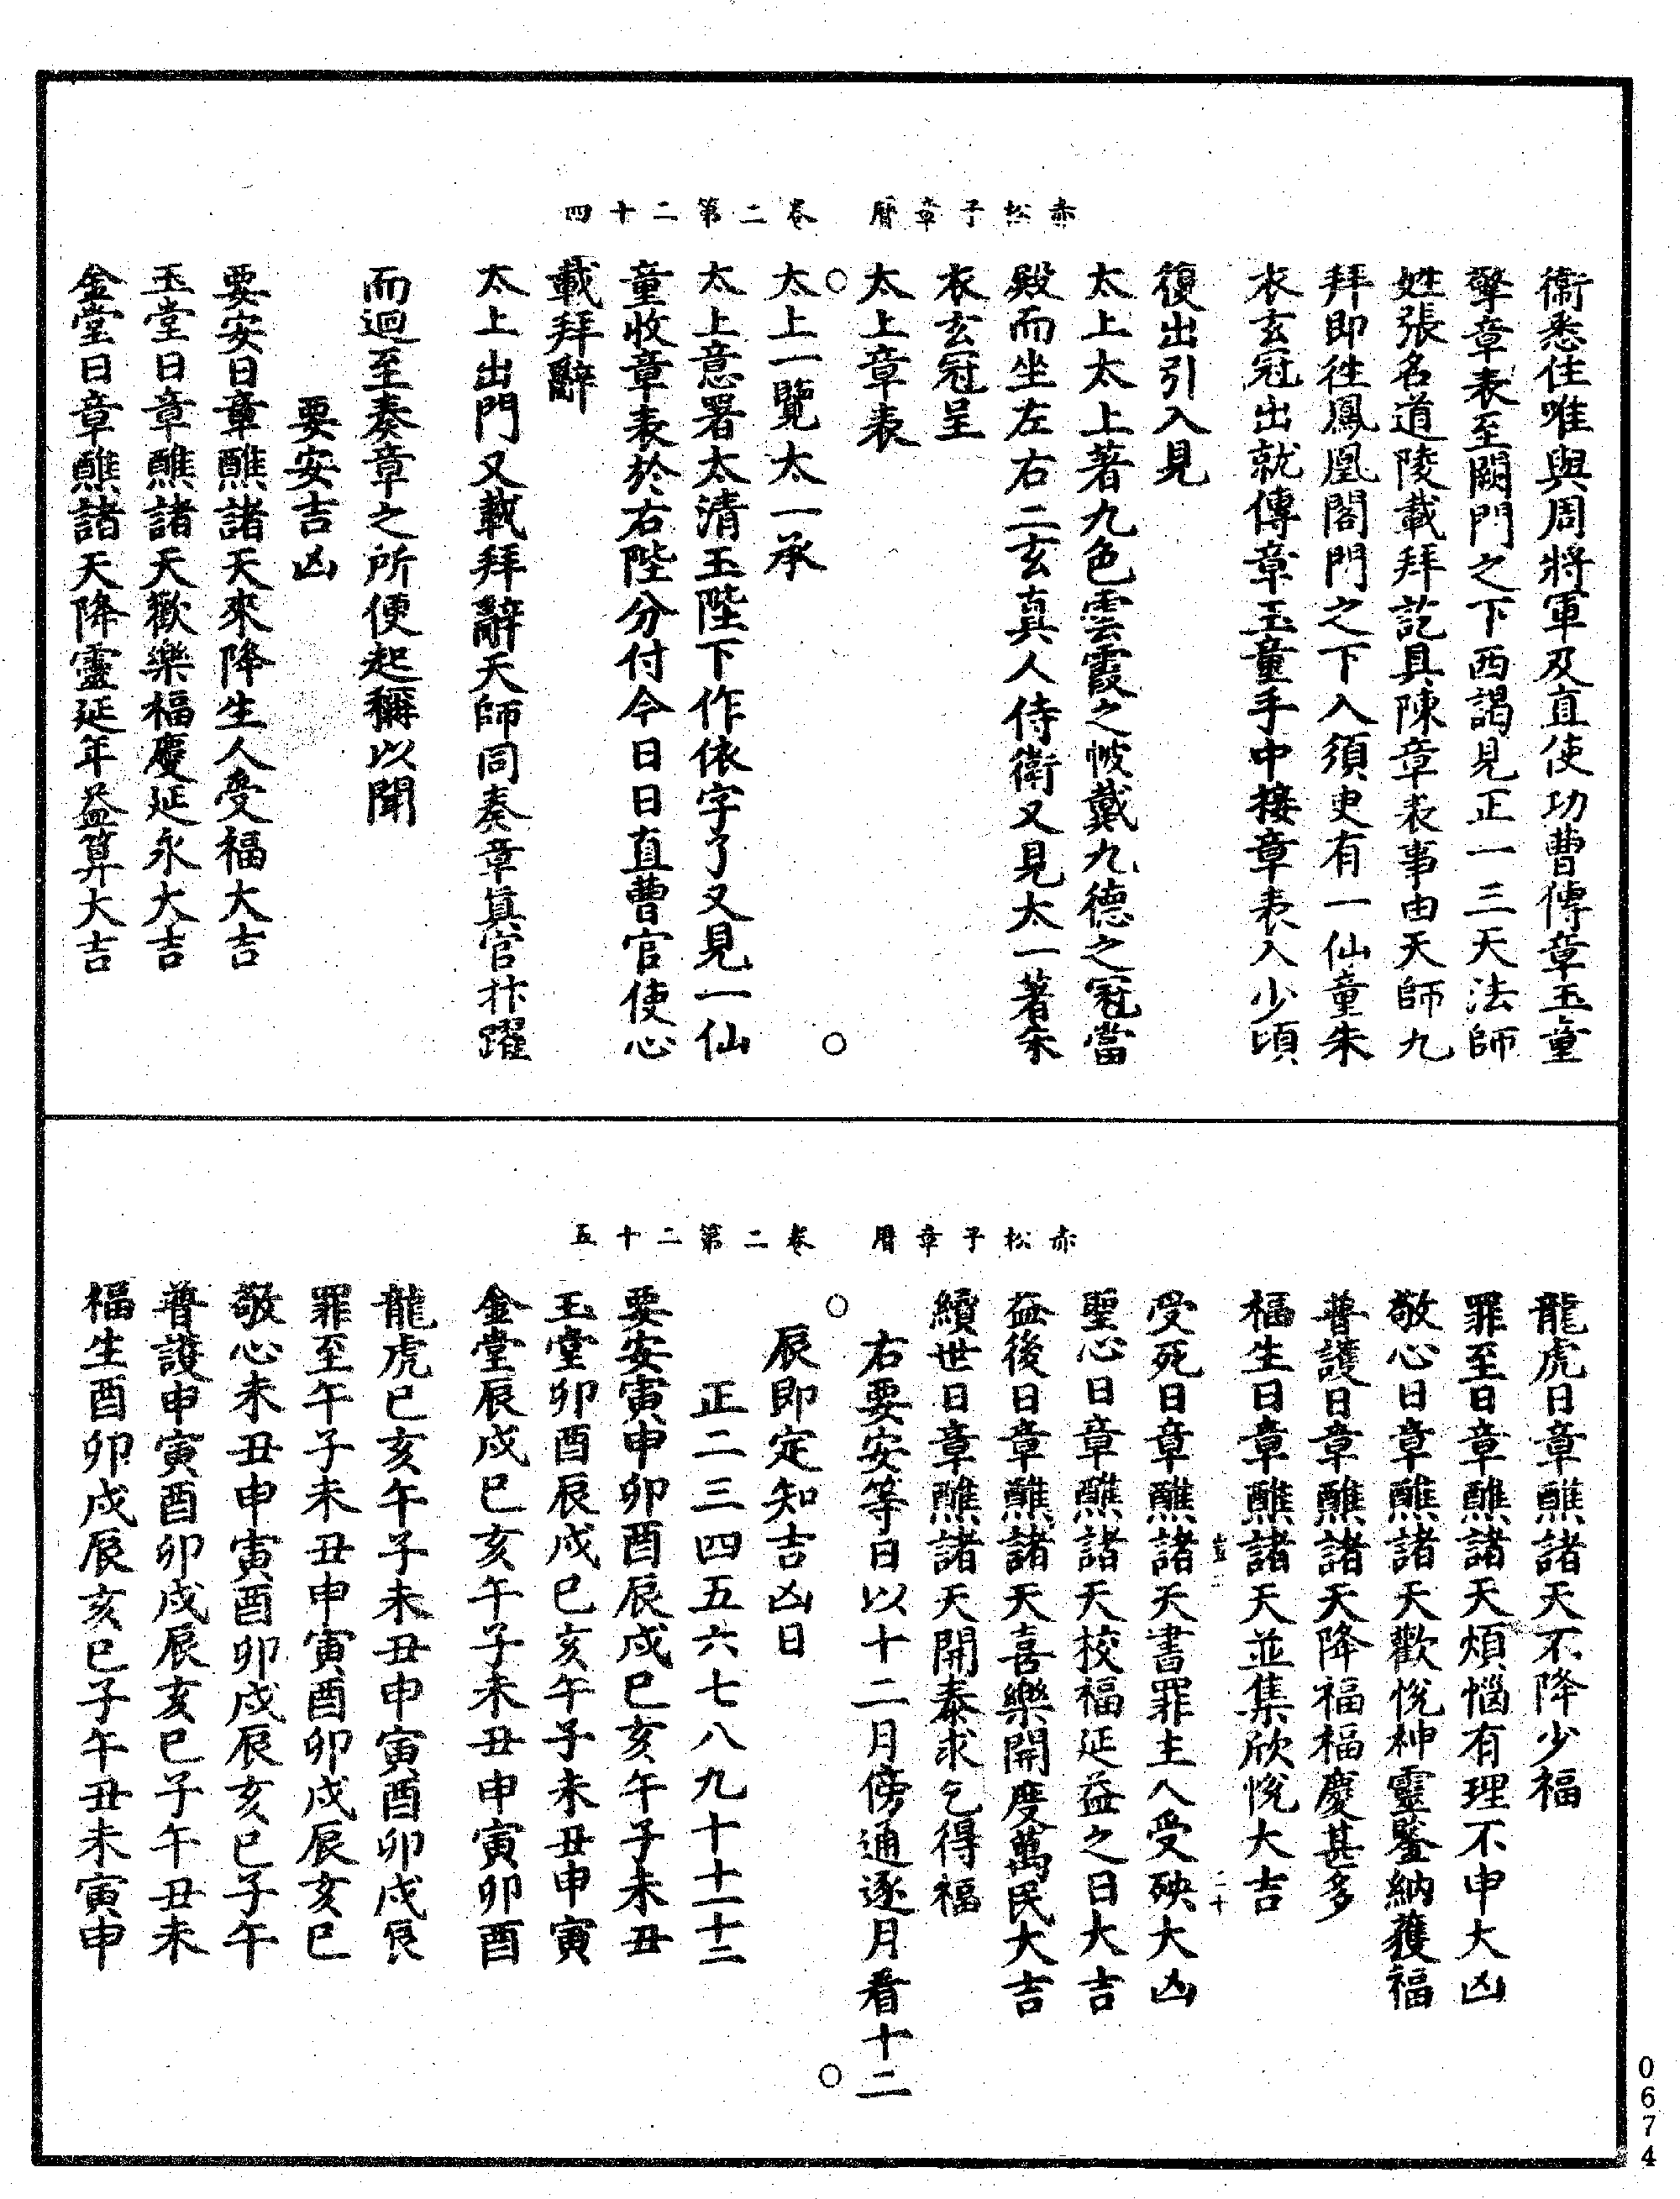 赤松子章曆 卷二第二十四
衛悉住唯與周將軍及直使功曹傳章玉童
擎章表至闕門之下西謁見正一三天法師
姓張名道陵載拜訖具陳章表事由天師九
拜即往鳳凰閣門之下入須史有一仙童朱
衣玄冠出就傳章玉童手中接章表入少頃
復出引入見
太上太上著九色雲霞之帔戴九德之冠當
殿而坐左右二玄真人侍衛又見太一著朱
衣玄冠呈
太上章表
太上一覽太一承
太上意署太清玉陛下作依字了又見一仙
童收章表於右陛分付今日日直曹官使心
載拜辭
太上出門又載拜辭天師同奏章真官抃躍
而迴至奏章之所便起稱以聞
要安吉凶
要安日章醮諸天來降生人受福大吉
玉堂日章醮諸天歡樂福慶延永大吉
金堂日章醮諸天降靈延年益算大吉
赤松子章曆 卷二第二十五
龍虎日章醮諸天不降少福
罪至日章醮諸天煩惱有理不申大凶
敬心日章醮諸天歡悅神靈鑒納獲福
普護日章醮諸天降福福慶甚多
福生日章醮諸天並集欣悅大吉
受死日章醮諸天書罪主人受殃大凶
聖心日章醮諸天校福延益之日大吉
益後日章醮諸天喜樂開度萬民大吉
續世日章醮諸天開泰求乞得福
右要安等日以十二月傍通逐月看十二
辰即定知吉凶日
正二三四五六七八九十十一十二
要安寅申卯酉辰戌巳亥午子未丑
玉堂卯酉辰戌巳亥午子未丑申寅
金堂辰戌巳亥午子未丑申寅卯酉
龍虎巳亥午子未丑申寅酉卯戌辰
罪至午子未丑申寅酉卯戌辰亥巳
敬心未丑申寅酉卯戌辰亥巳子午
普護申寅酉卯戌辰亥巳子午丑未
福生酉卯戌辰亥巳子午丑未寅申
0674